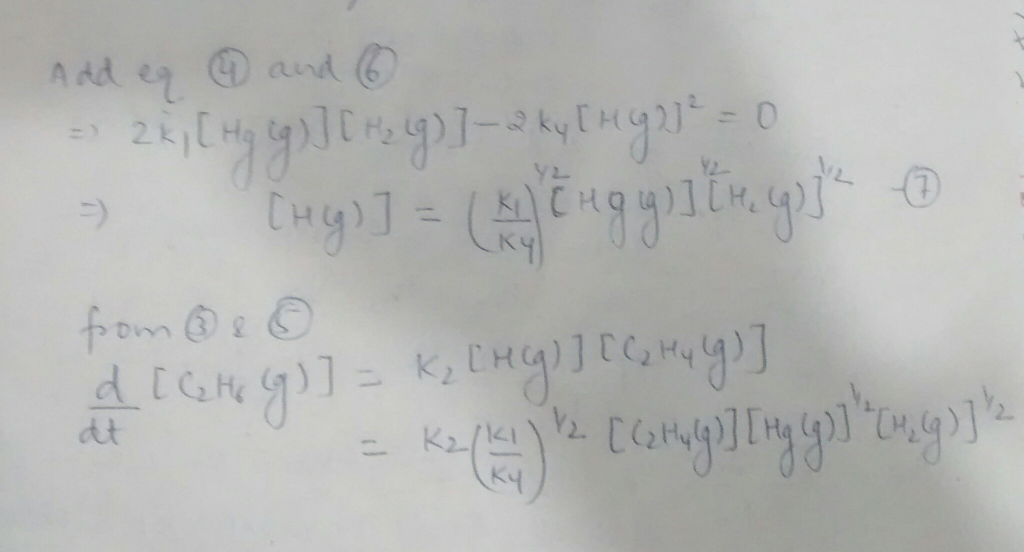 Add eq ④ and ⑥
=> 2k₁[Hg(g)][H₂(g)] - 2k₄[H(g)]² = 0
=> [H(g)] = (K₁/K₄)^1/2 [Hg(g)]^1/2 [H₂(g)]^1/2 -⑦
from ③ & ⑤
d/dt [C₂H₆(g)] = K₂[H(g)][C₂H₄(g)]
= K₂(K₁/K₄)^1/2 [C₂H₄(g)][Hg(g)]^1/2 [H₂(g)]^1/2